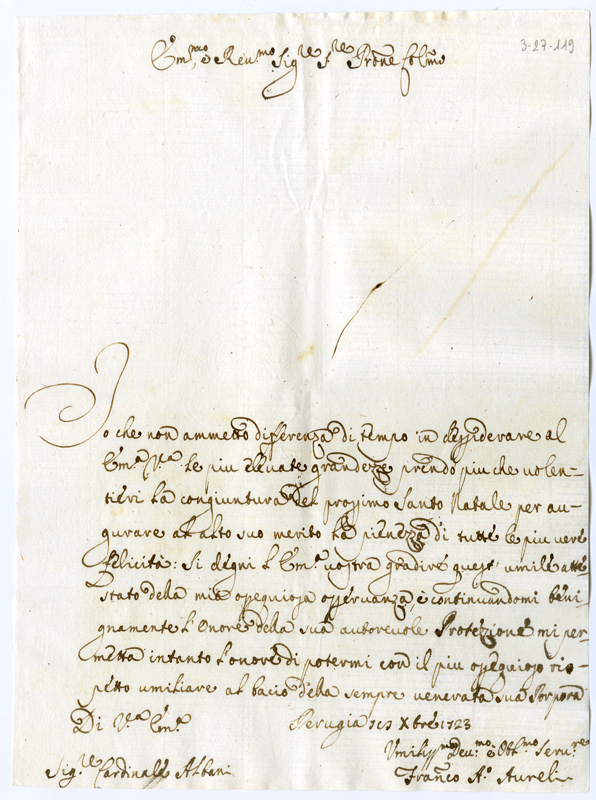 3-27-119
Em.mo, e Reu.mo Sig.re S.re Prone Colmo
Io che non ammetto differenza di tempo in dessiderare al
Em.a V.ra le piu eleuate grandezze prendo piu che uolen=
tieri la congiuntura del prossimo Santo Natale per au-
gurare al alto suo merito la pienezza di tutte le piu uere
felicità: Si degni l'Em.a uostra gradire quest' umile atte
stato della mia ossequiosa osseruanza, e continuandomi beni
gnamente l'onore della sua autoreuole Protezione mi per-
metta intanto l'onore di potermi con il piu ossequioso ris-
petto umiliare al bacio della sempre uenerata sua Porpora
Di V.a Em.a Perugia Xbre 1723
Vmiliss.mo Deu.mo e Obl.mo Seru.re
Sig.re Cardinale Albani Fran.co A.o Aureli